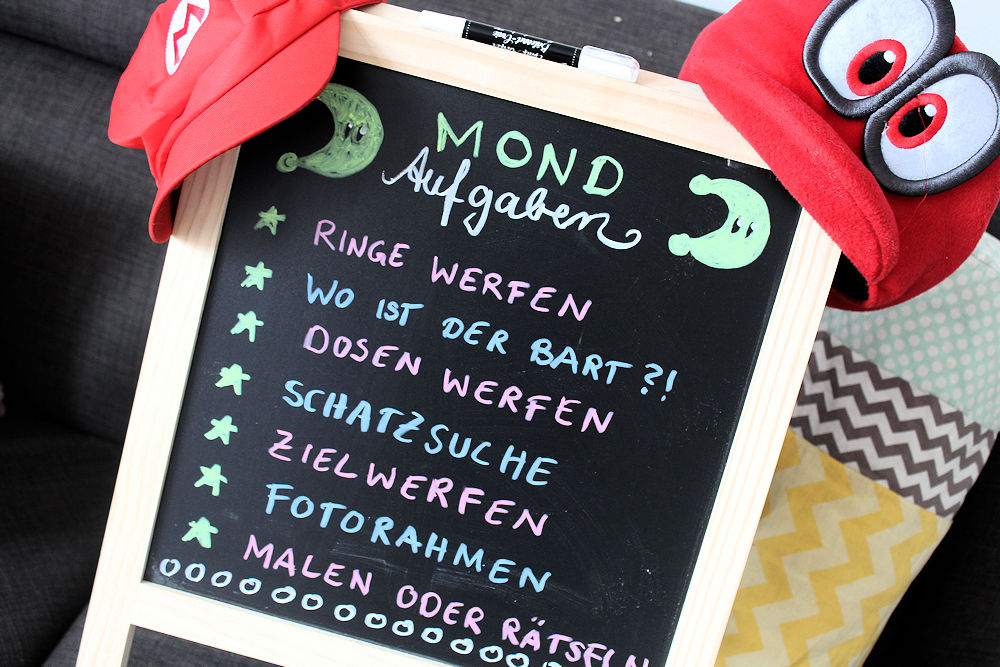 MOND
Aufgaben
RINGE WERFEN
WO IST DER BART?!
DOSEN WERFEN
SCHATZSUCHE
ZIELWERFEN
FOTORAHMEN
MALEN ODER RÄTSELN
M